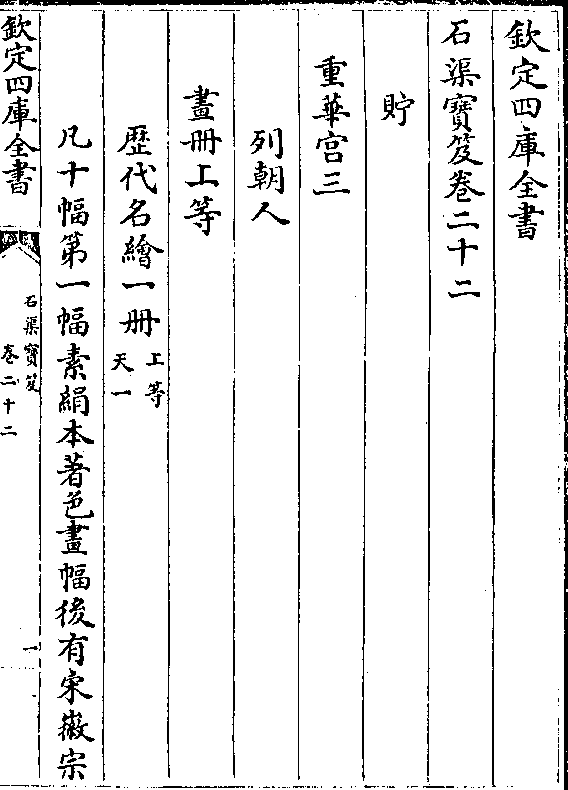 欽定四庫全書
石渠寶笈卷二十二
貯
重華宫三
列朝人
畫册上等
歴代名繪一册
上等
天一
凡十幅第一幅素絹本著色畫幅後有宋徽宗
欽定四庫全書
石渠寶笈
卷二十二
一